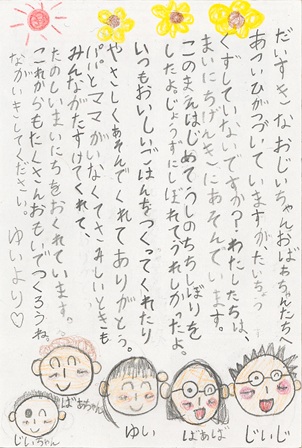 だいすきなおじいちゃんおばあちゃんたちへ
あついひがつづいていますがたいちょう
くずしていないですか?わたしたちは、
まいにちげんきにあそんでいます。
このまえはじめてうしのちちしぼりを
したよ。じょうずにしぼれてうれしかったよ。
いつもおいしいごはんをつくってくれたり
やさしくあそんでくれてありがとう。
パパとママがいなくてさみしいときも
みんながたすけてくれて、
たのしいまいにちをおくれています。
これからもたくさんおもいでつくろうね
なかいきしてください。ゆいより♡
じいじ
ばあば
ゆい
ばあちゃん
じいちゃん